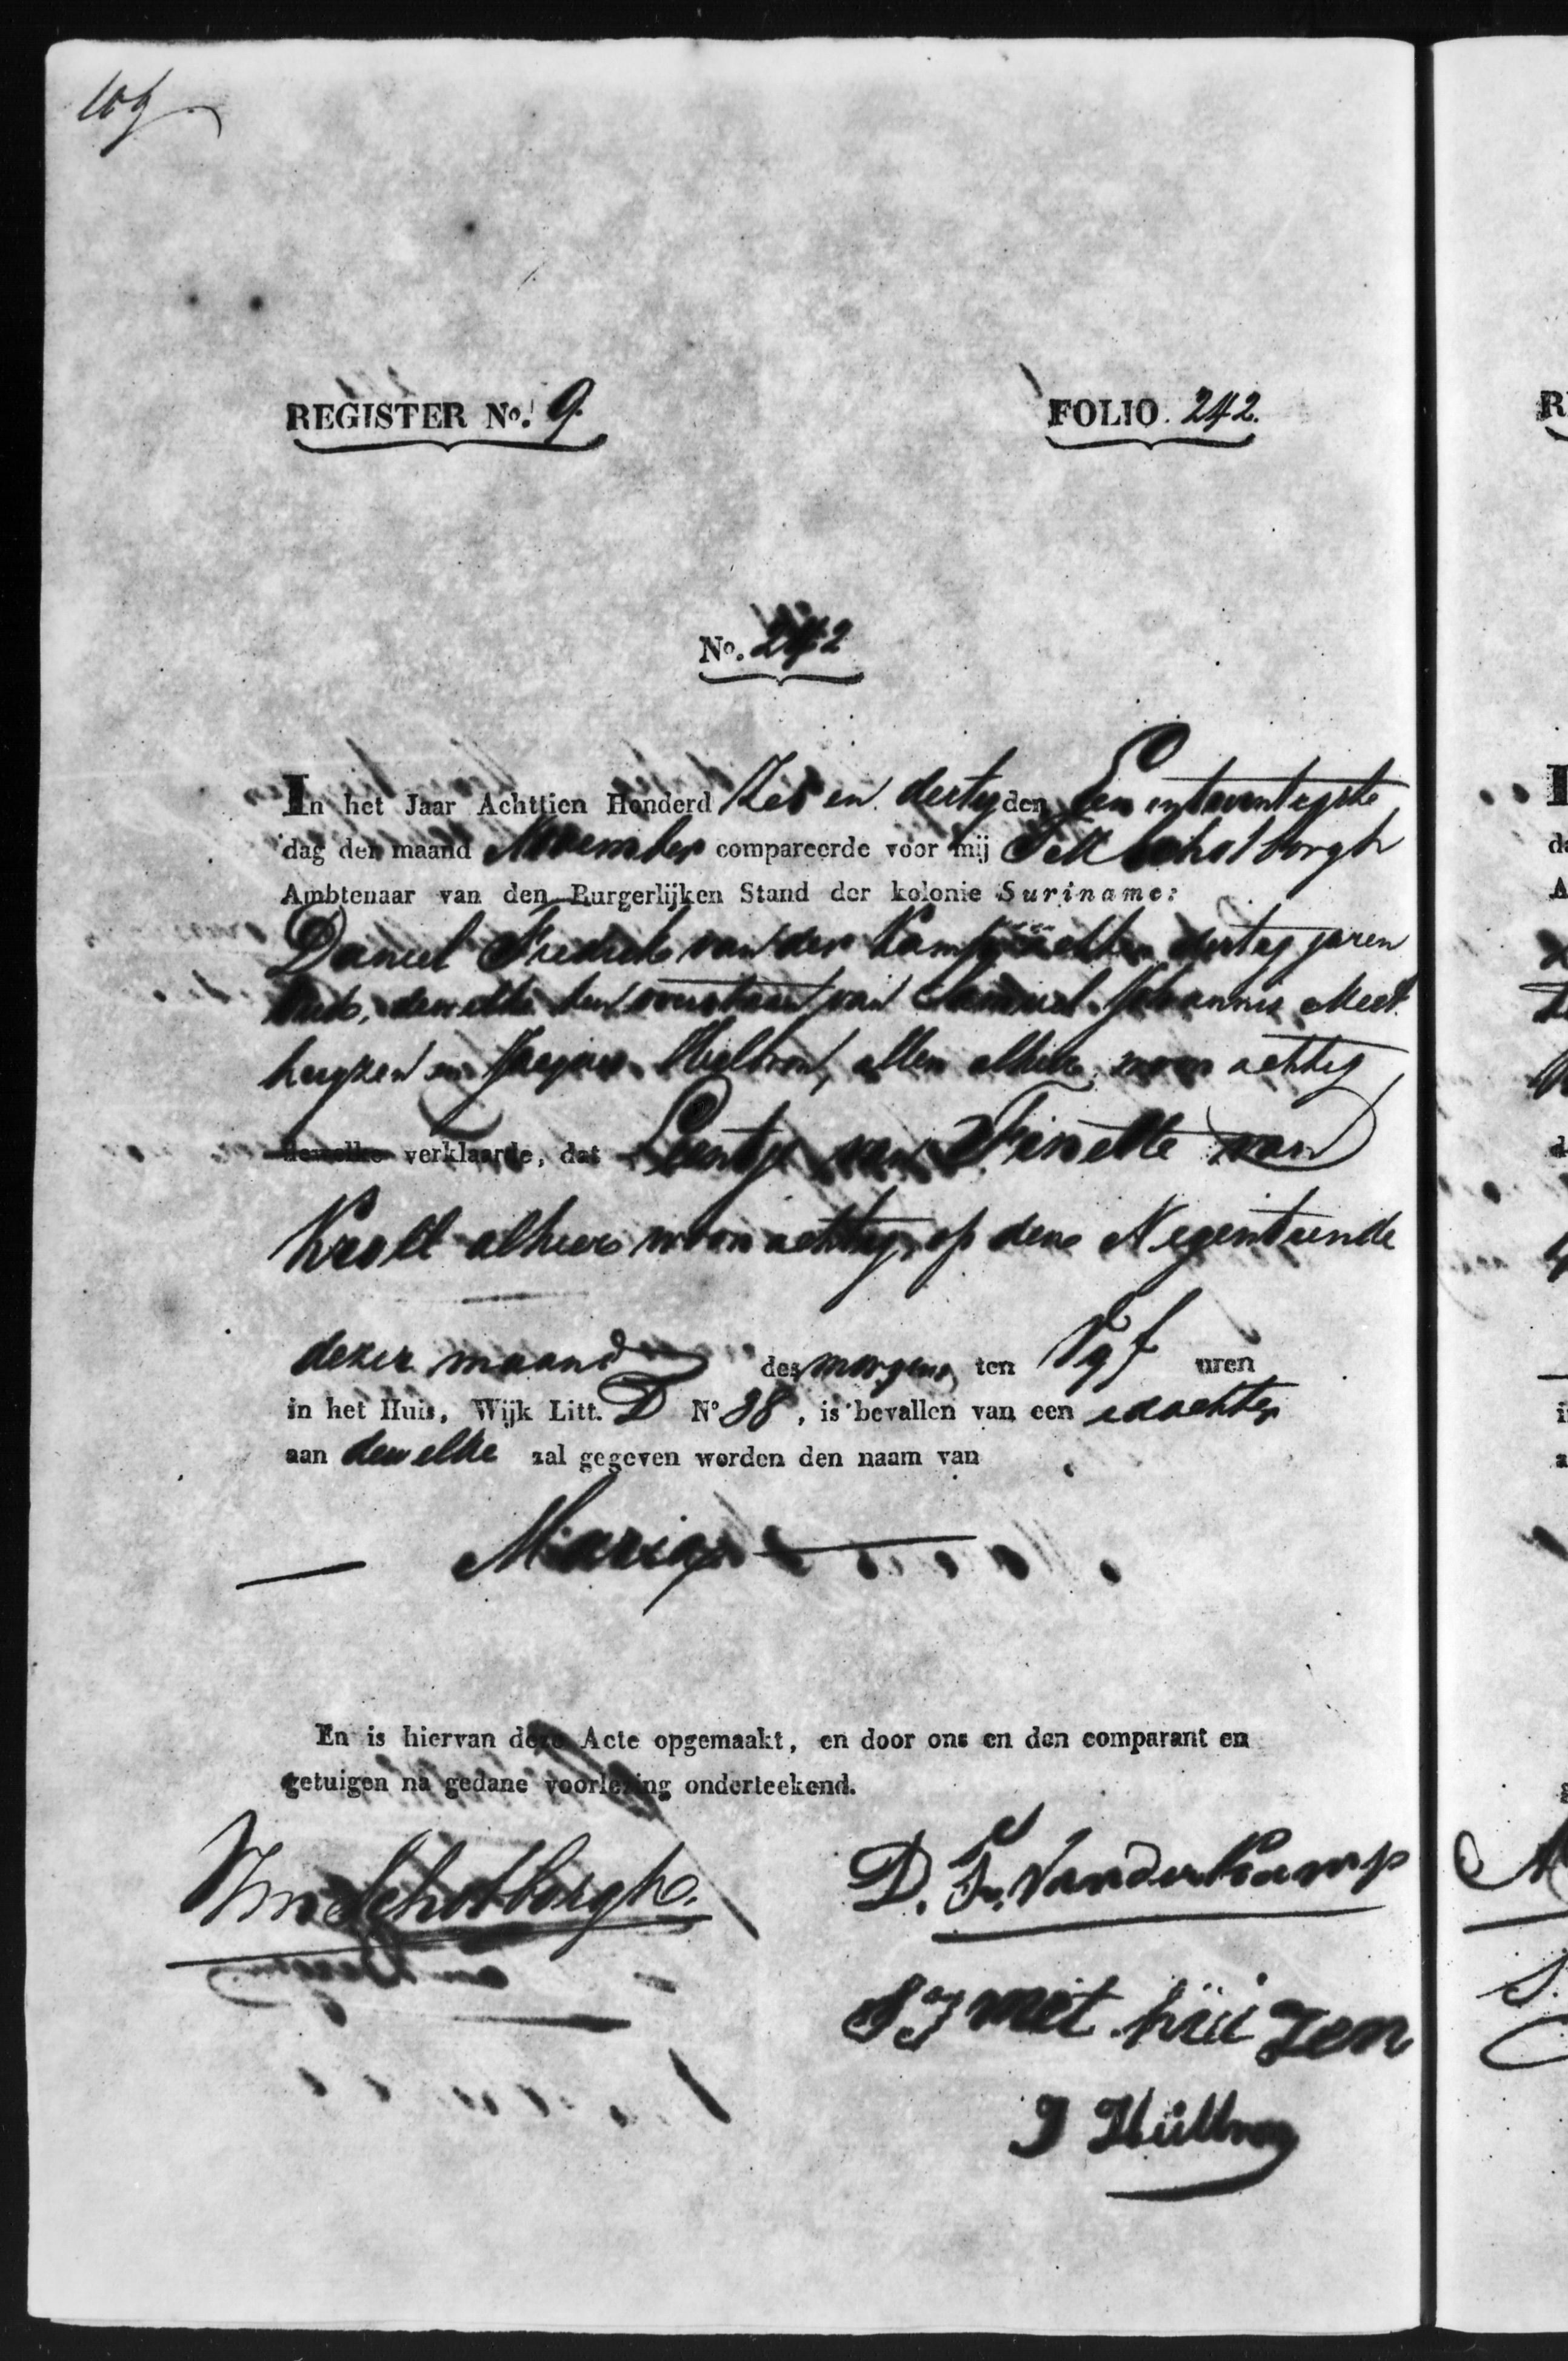 REGISTER No. 9.
FOLIO. 242.
No. 242
In het Jaar Achttien Honderd Zes en dertig den Een en twentigste
dag der maand November compareerde voor mij Schotborgh
Ambtenaar van den Burgerlijken Stand der kolonie Suriname:
Daniel Fredrik van der Kamp dertig jaren
oud, dewelke ten overstaan van Samuel Johannis Meet
huyzen en allen alhier woonachtig
dewelke verklaarde, dat Leentje van Finette van
Kralt alhier woonachtig, op den Negentiende
dezer maand des morgens ten Vyf uren
in het Huis, Wijk Litt. D No 38, is bevallen van een dochter
aan dewelke zal gegeven worden den naam van
Maria
En is hiervan deze Acte opgemaakt, en door ons en den comparant en
getuigen na gedane voorlezing onderteekend.
Schotborgh.
D. F. Van der Kamp
SJ met hüi zen
J